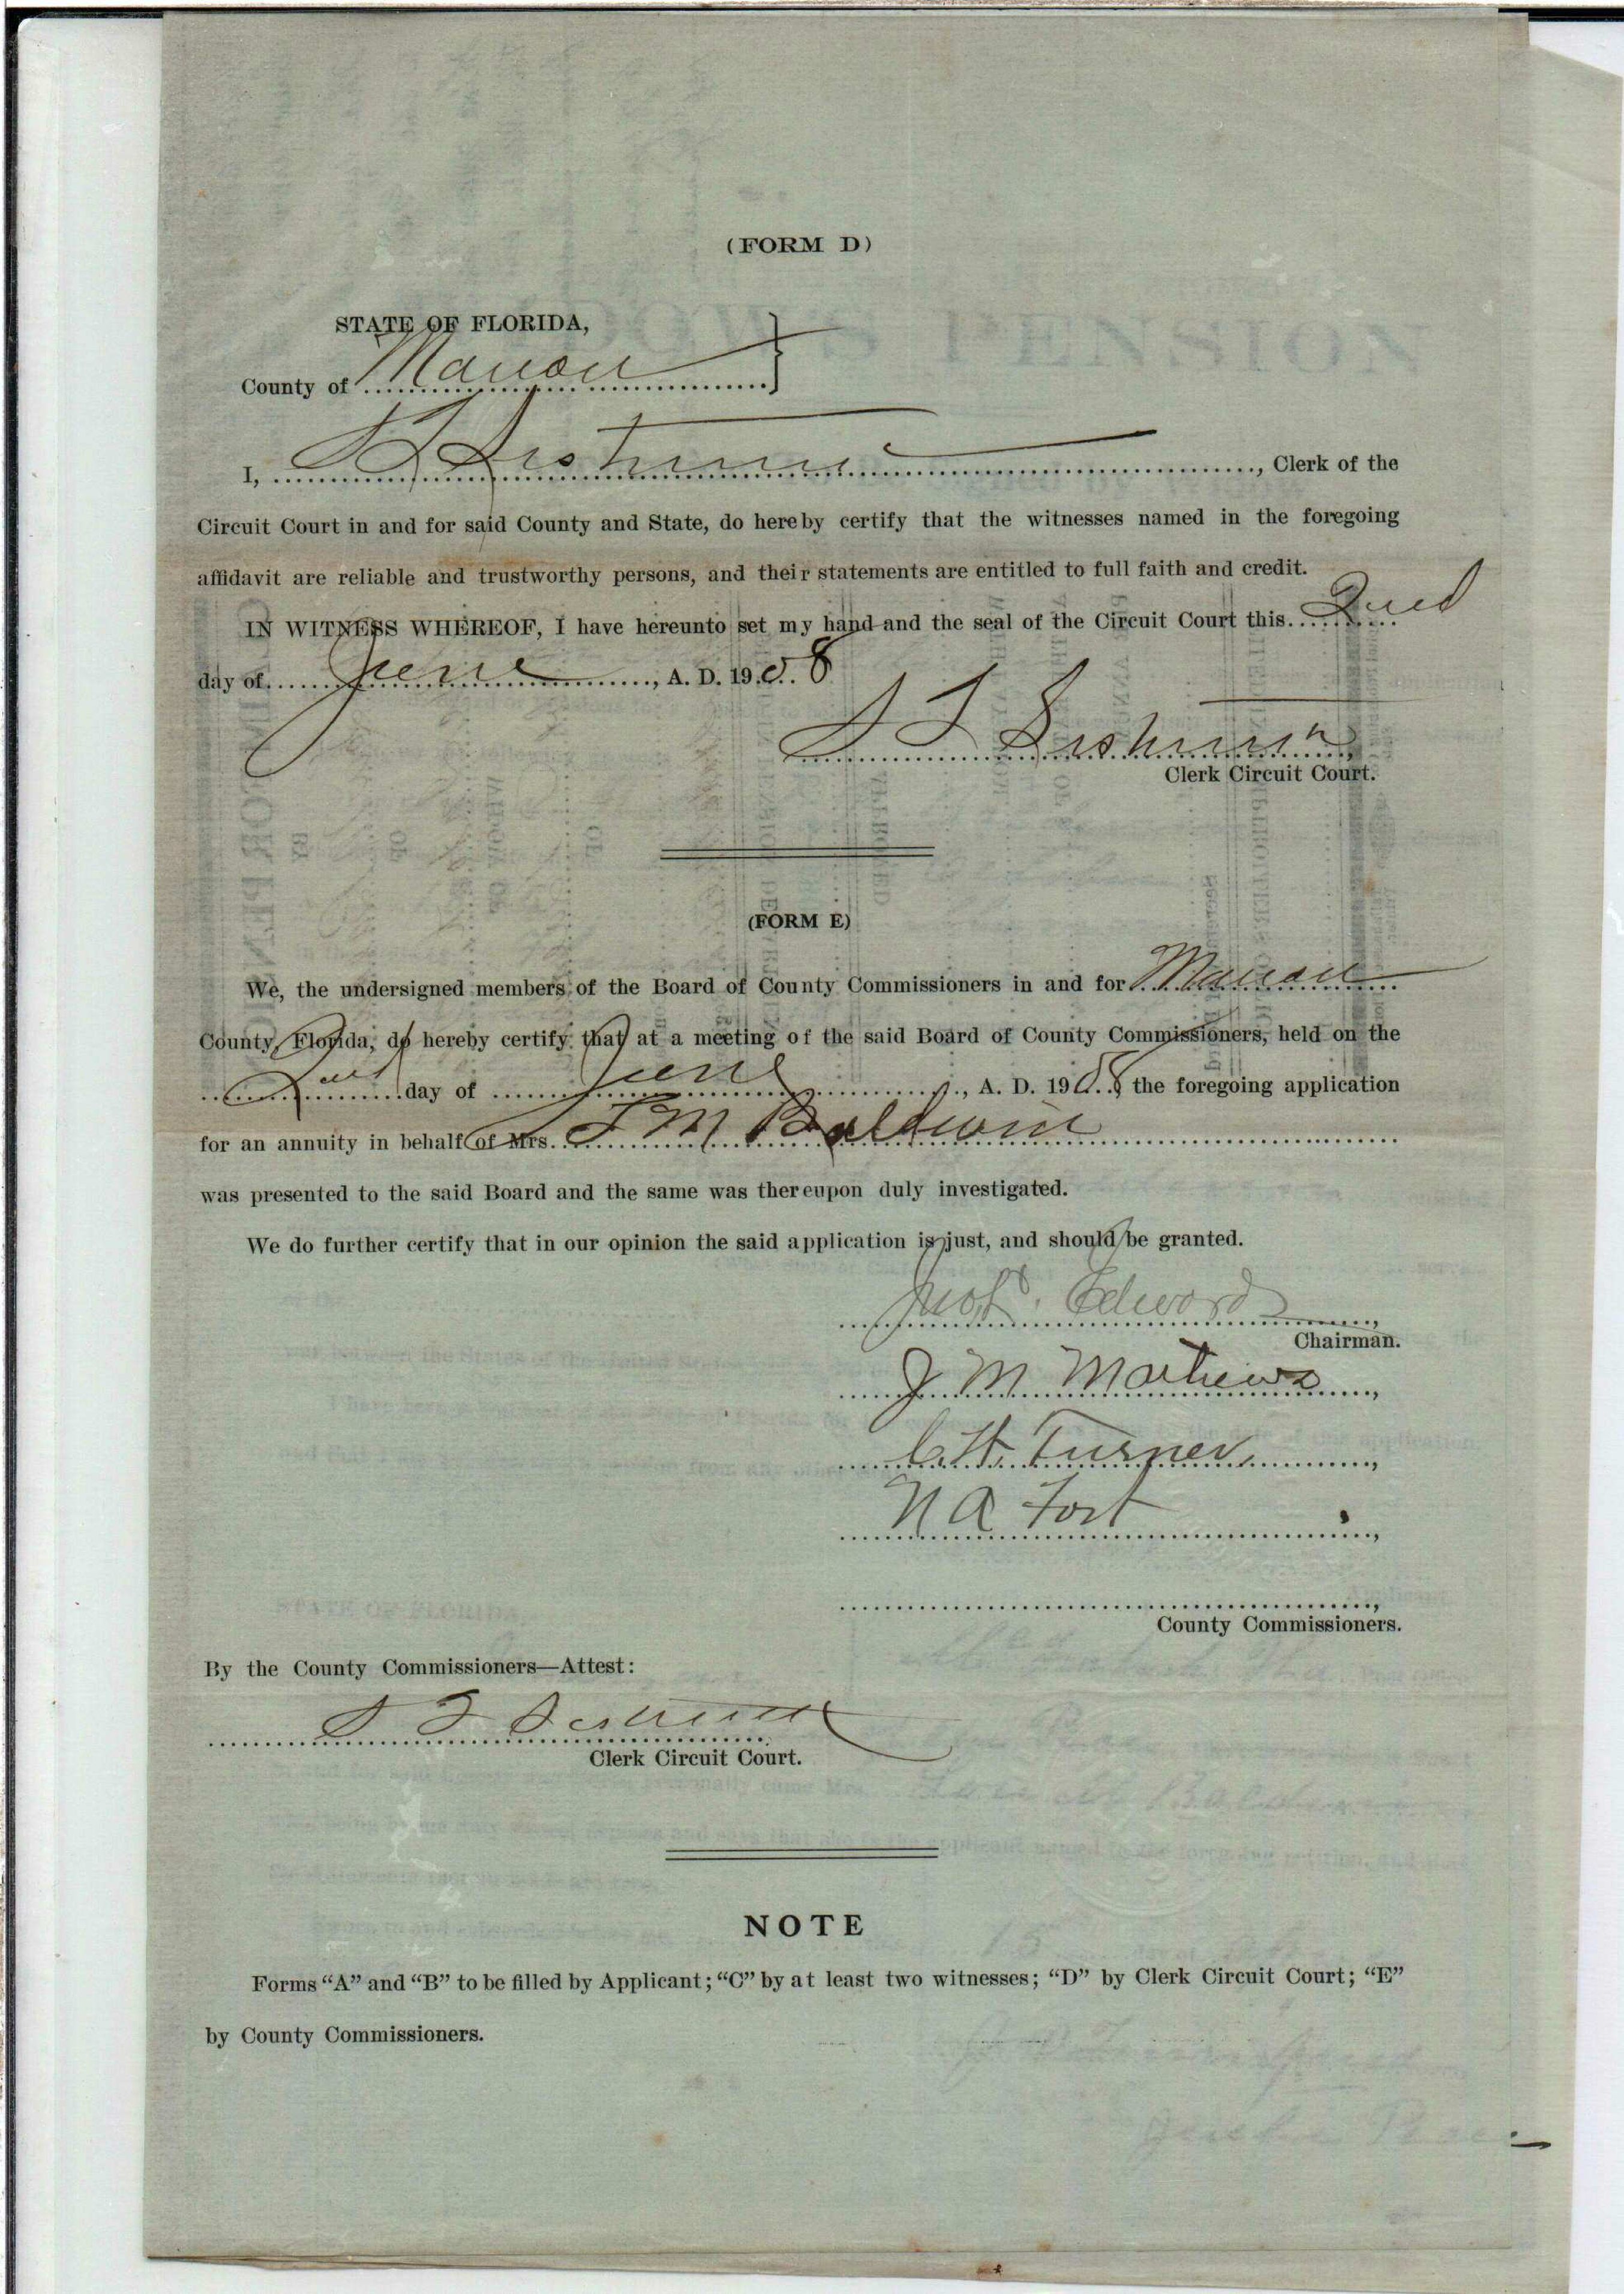 (FORM D)
STATE OF FLORIDA,
County of Marion
I, S T Sistrunk, Clerk of the
Circuit Court in and for said County and State, do hereby certify that the witnesses named in the foregoing
affidavit are reliable and trustworthy persons, and their statements are entitled to full faith and credit.
IN WITNESS WHEREOF, I have hereunto set my hand and the seal of the Circuit Court this 2nd
day of June, A. D. 1908
S T Sistrunk
Clerk Circuit Court.
(FORM E)
We, the undersigned members of the Board of County Commissioners in and for Marion
County, Florida, do hereby certify that at a meeting of the said Board of County Commissioners, held on the
2nd day of June, A. D. 1908, the foregoing application
for an annuity in behalf of Mrs. T M Baldwin
was presented to the said Board and the same was thereupon duly investigated.
We do further certify that in our opinion the said application is just, and should be granted.
Edwards,
Chairman.
J. M. Mathews,
C. H. Turner,
N A Fort,
County Commissioners.
By the County Commissioners—Attest:
S T Sistrunk
Clerk Circuit Court.
NOTE
Forms “A” and “B” to be filled by Applicant; “C” by at least two witnesses; “D” by Clerk Circuit Court; “E”
by County Commissioners.